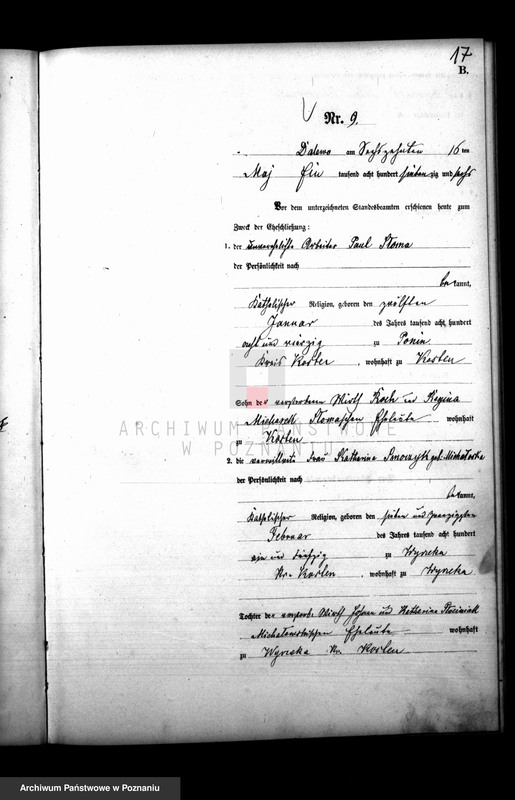 17
B.
Nr. 9.
Dalewo am Sechszehnten 16 ten
Maj Ein tausend acht hundert siebenzig und sechs
Vor dem unterzeichneten Standesbeamten erschienen heute zum
Zweck der Eheschließung:
1. der unverehelichte Arbeiter Paul
der Persönlichkeit nach
bekannt,
Katholischer Religion, geboren den zwölften
Januar des Jahres tausend acht hundert
acht und vierzig zu Ponin
Kreis Kosten, wohnhaft zu Kosten
Sohn der verstorbenen Wirth und Regina
Eheleute wohnhaft
zu Kosten
2. die verwittwete Frau Katharina
der Persönlichkeit nach
bekannt,
Katholischer Religion, geboren den sieben und zwanzigsten
Februar des Jahres tausend acht hundert
ein und zu Wyrzeka
Kr. Kosten, wohnhaft zu Wyrzeka
Tochter der verstorb. Wirth Johann und Katharina
Eheleute wohnhaft
zu Wyrzeka Kr. Kosten
ARCHIWUM PAŃSTWOWE
W POZNANIU
Archiwum Państwowe w Poznaniu